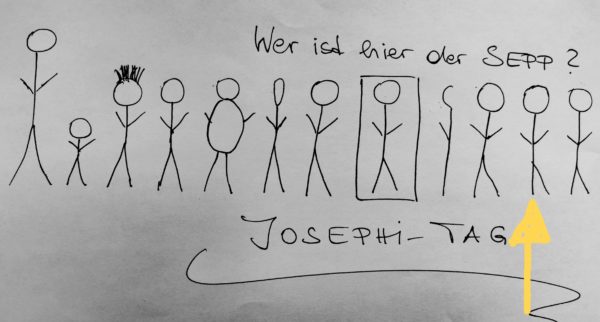 Wer ist hier der SEPP?
JOSEPHi-TAG